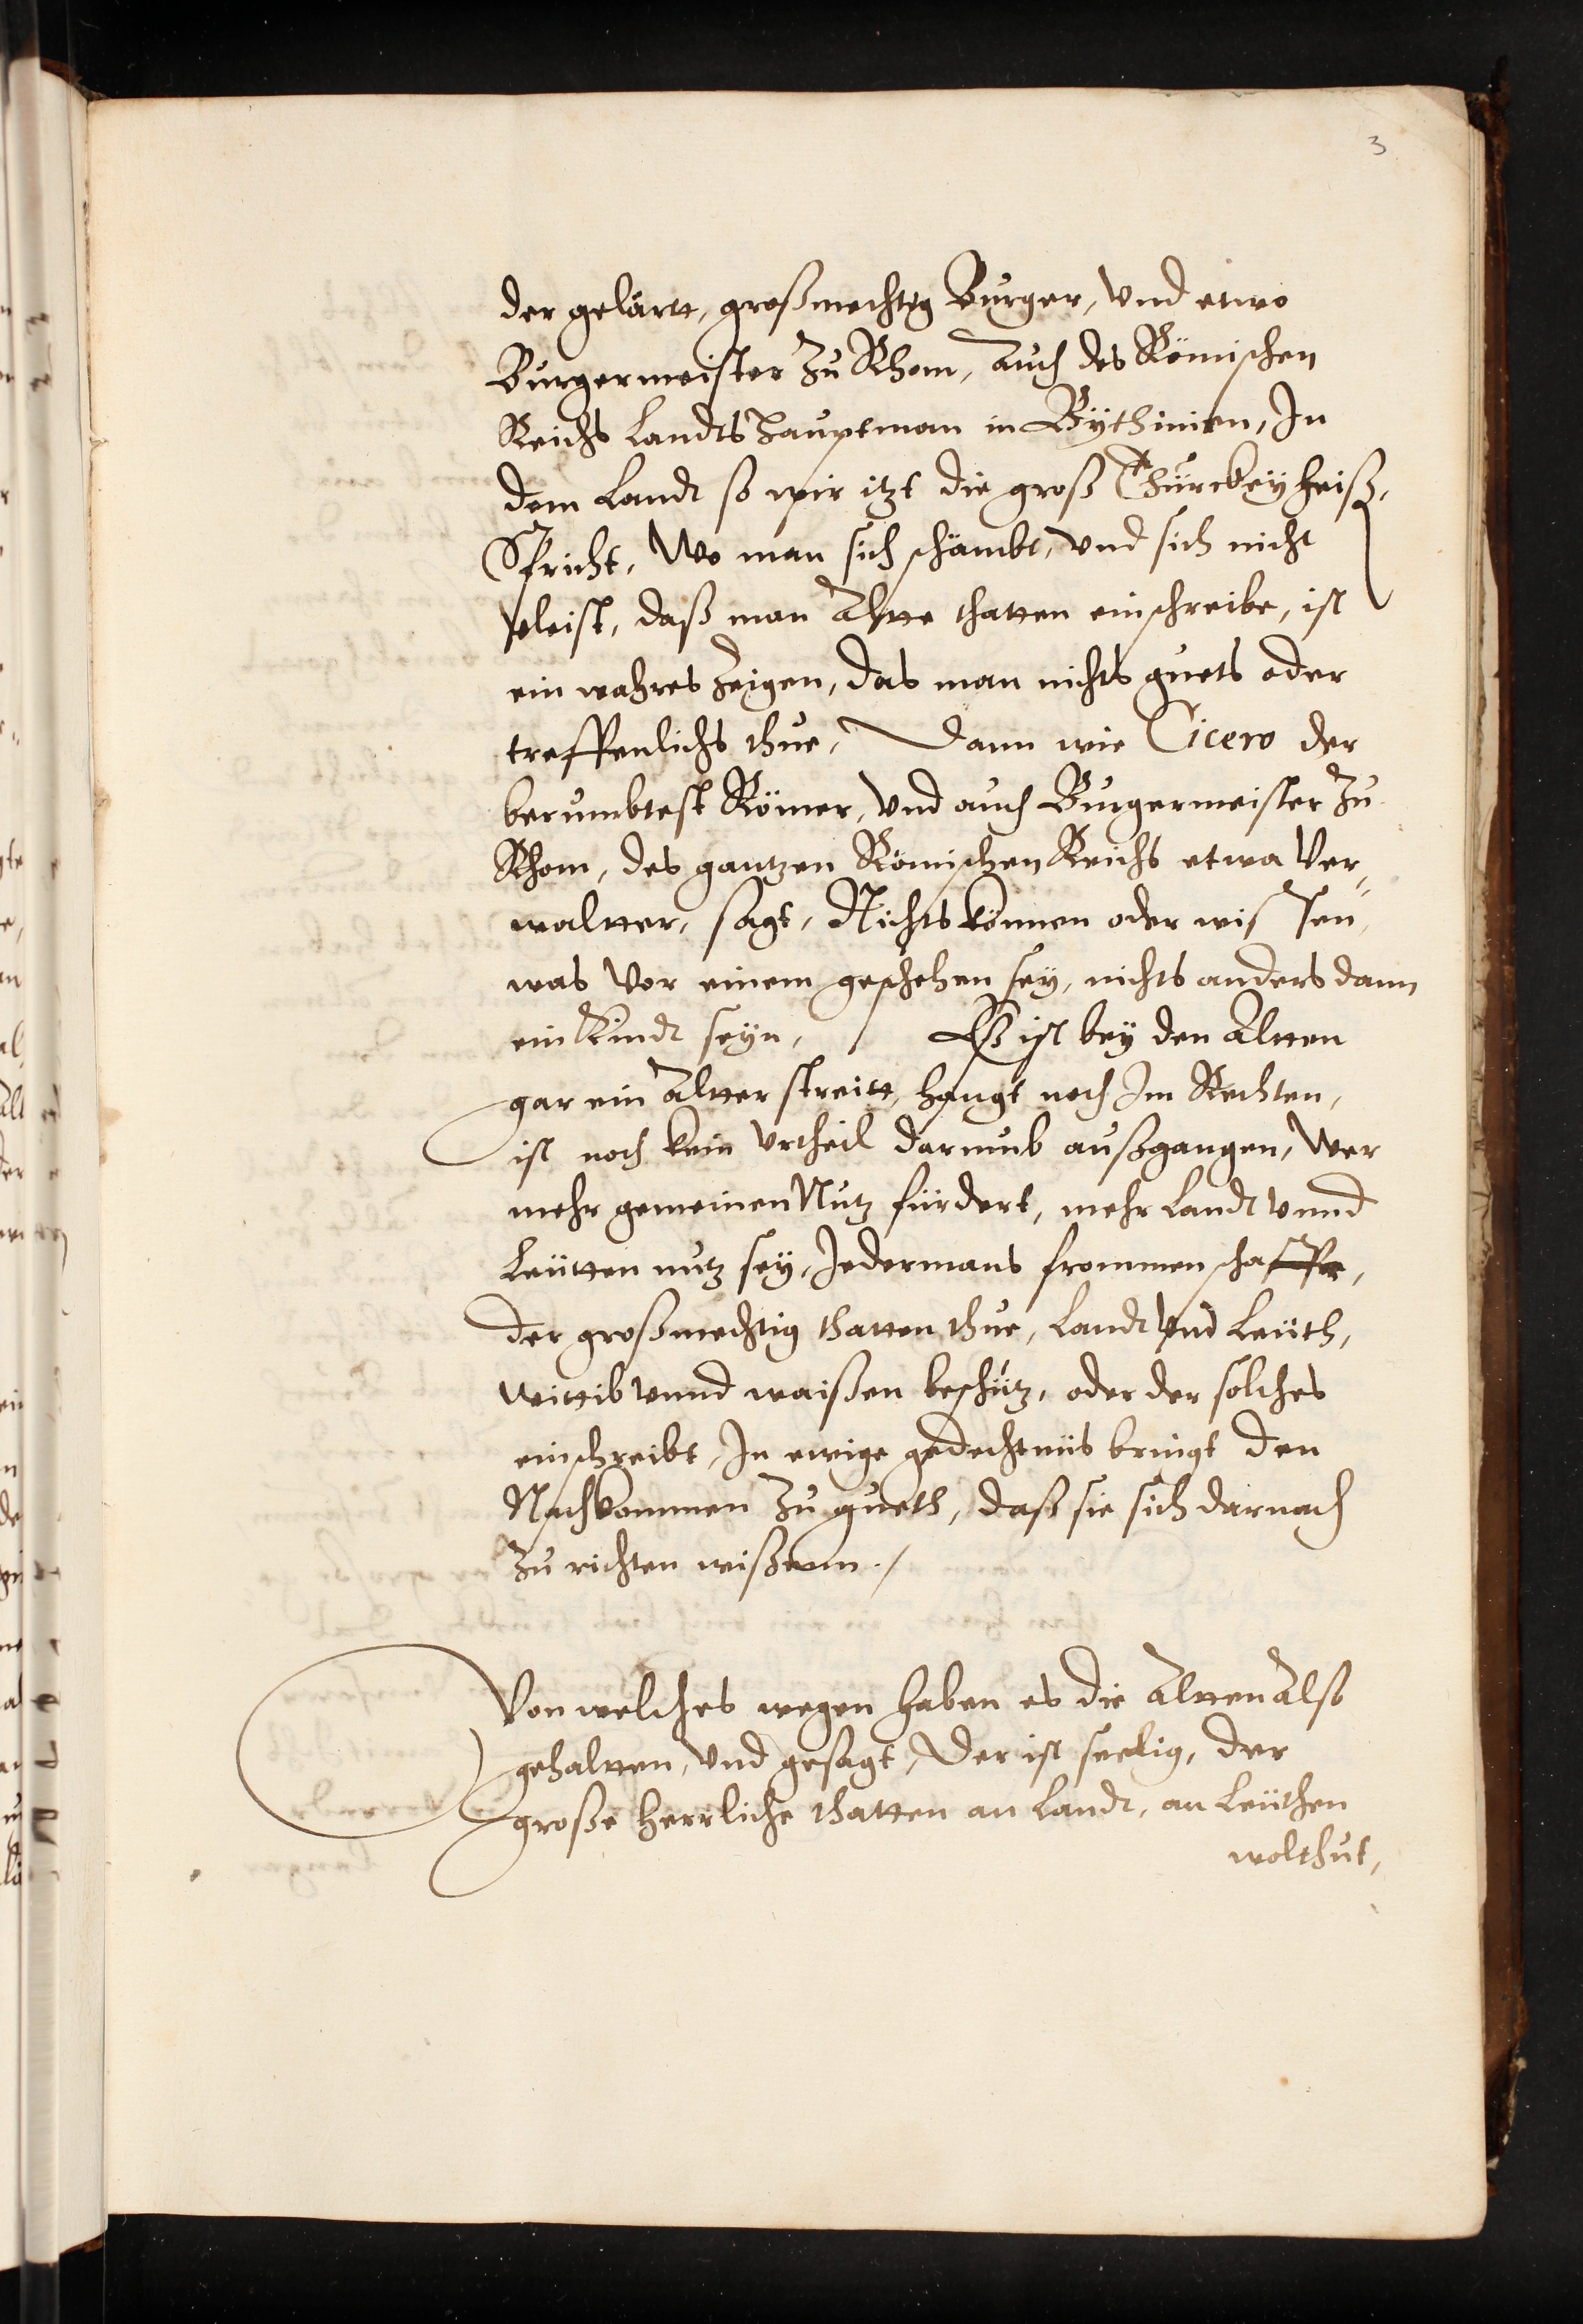 3
der gelärtt, großmechtig Burger, Vnd etwo
Burgermeister Zu Rhom, Auch des Römischen
Reichs Landts Hauptman in Bÿthinien, In
dem Landt so wir itzt die groß Thürckeÿ heiß,
Spricht, Wo man sich schämbt, Vnd sich nicht
vleist, daß man Altte thatten einschreibe, ist
ein wahres Zeigen, das man nichts guets oder
treffenlichs thue, Dann wie Cicero der
berumbtest Römer, Vnd auch Burgermeister Zu
Rhom, des gantzen Römischen Reichs etwa Ver„
waltter, sagt, Nichts können oder wissen,
was Vor einem geschehen seÿ, nichts anders dann
ein Kindt seyn, Eß ist beÿ den Altten
gar ein Altter streitt, hangt noch Im Rechten,
ist noch kein Vrtheil darumb außgangen, Wer
mehr gemeinen Nutz fürdert, mehr Landt vnnd
Leütten nutz seÿ, Jedermans frommen schaffe,
der großmechtig thatten thue, Landt Vnd Leüth,
Wittib vnnd waißen beschütz, oder der solches
einschreibt, In ewige gedechtnüs bringt den
Nachkommen Zu gueth, daß sie sich darnach
Zu richten wißenn./
Von welches wegen haben es die Altten Also
gehaltten, Vnd gesagt, Der ist seelig, der
große herrliche thatten an Landt, an Leüthen
wolthut,